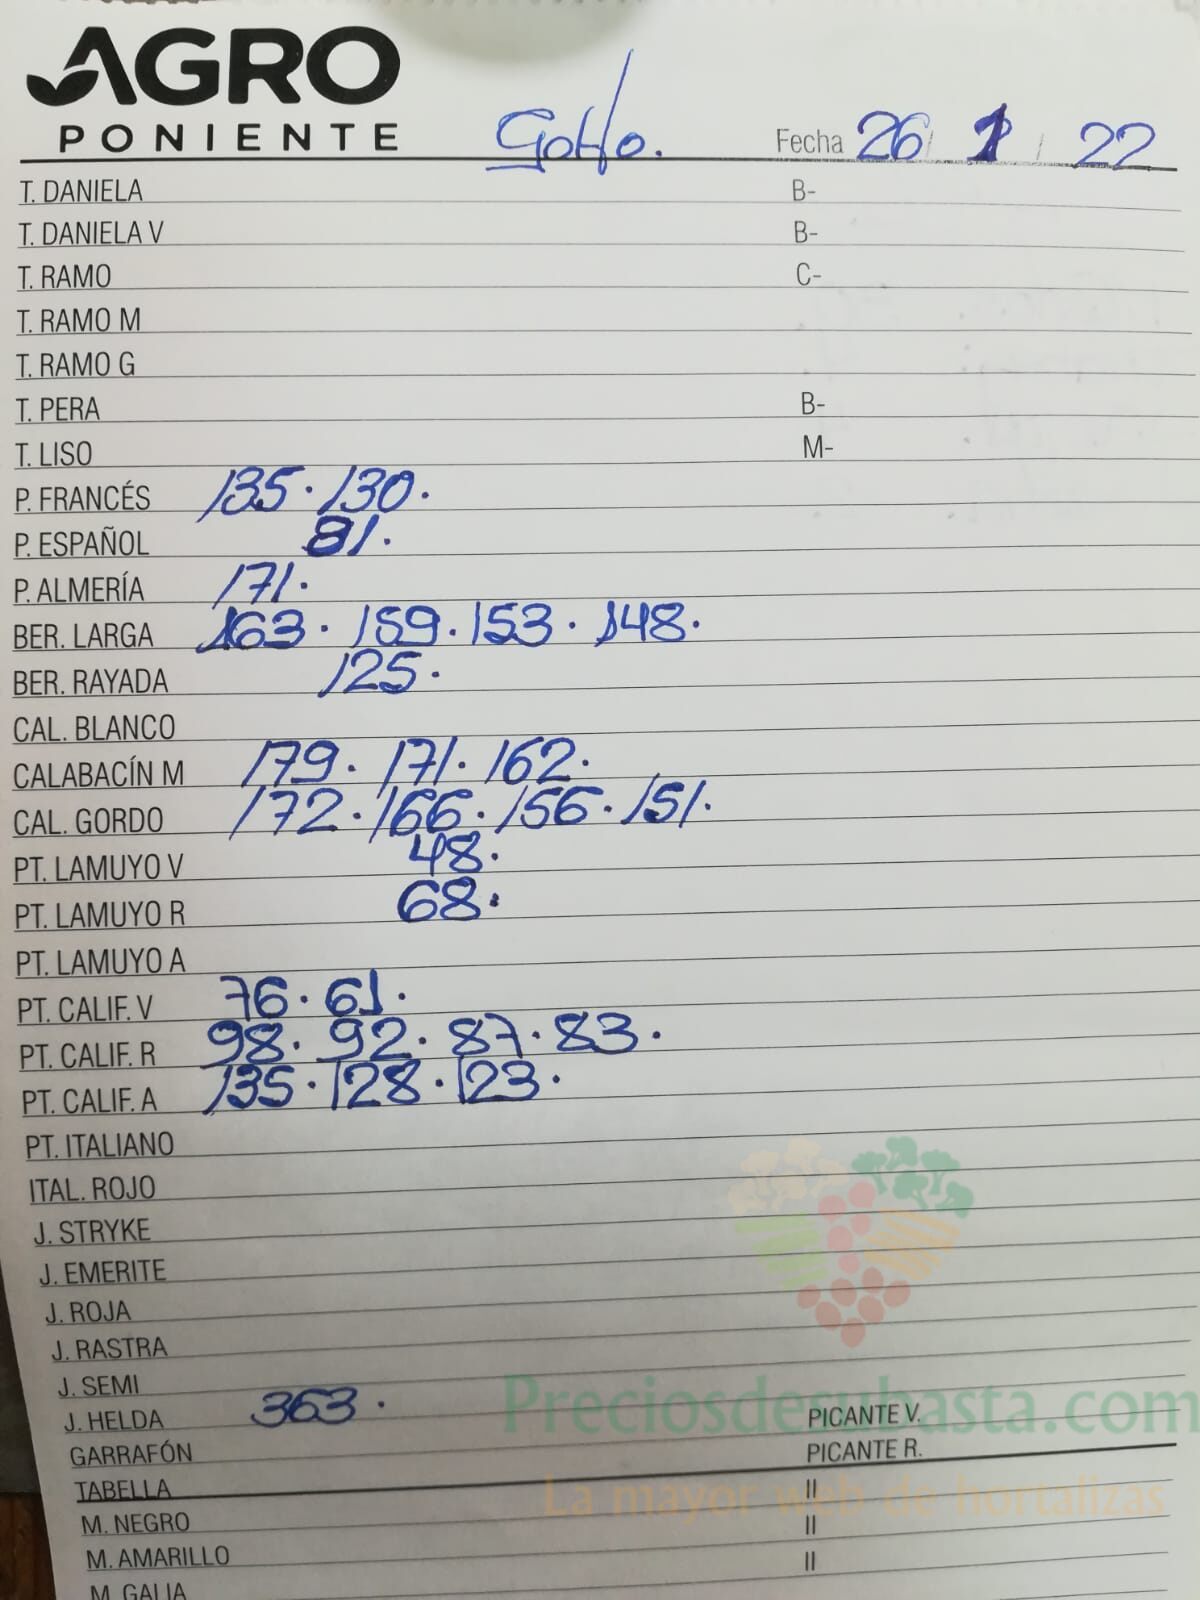 AGRO
PONIENTE
Gollo. Fecha 26 / 1 / 22
T. DANIELA B-
T. DANIELA V B-
T. RAMO C-
T. RAMO M
T. RAMO G
T. PERA B-
T. LISO M-
P. FRANCÉS 135. 130.
P. ESPAÑOL 81.
P. ALMERÍA 171.
BER. LARGA 163. 159. 153. 148.
BER. RAYADA 125.
CAL. BLANCO
CALABACÍN M 179. 171. 162.
CAL. GORDO 172. 166. 156. 151.
PT. LAMUYO V 48.
PT. LAMUYO R 68.
PT. LAMUYO A
PT. CALIF. V 76. 61.
PT. CALIF. R 98. 92. 87. 83.
PT. CALIF. A 135. 128. 123.
PT. ITALIANO
ITAL. ROJO
J. STRYKE
J. EMERITE
J. ROJA
J. RASTRA
J. SEMI
J. HELDA 363. PICANTE V.
GARRAFÓN PICANTE R.
TABELLA II
M. NEGRO II
M. AMARILLO II
M. GALIA
Preciosdesubasta.com
La mayor web de hortalizas